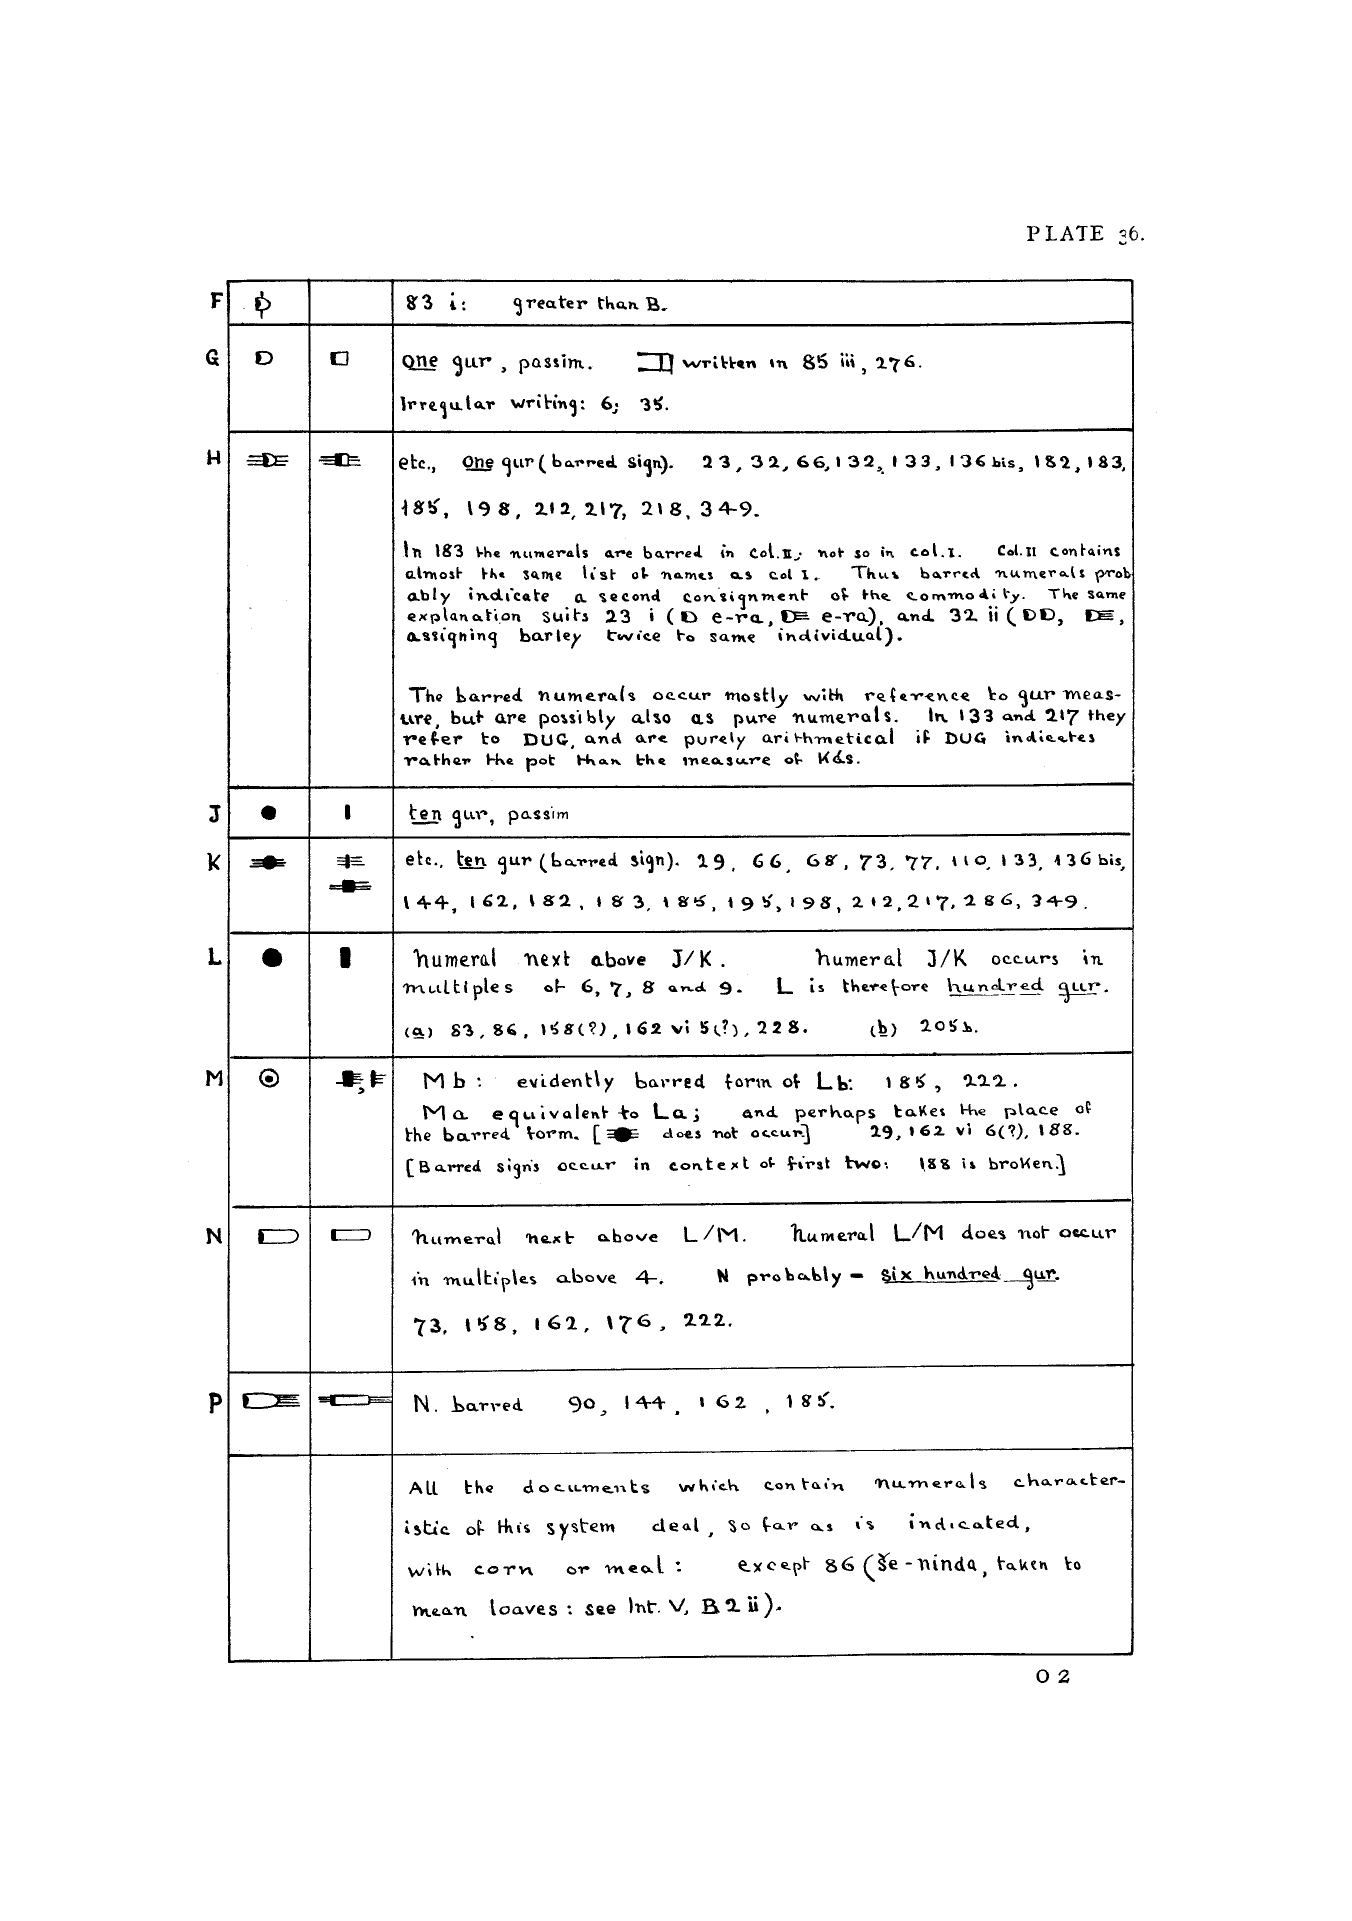 PLATE 36.
F 83 i: greater than B.
G One gur, passim. written in 85 iii, 276.
Irregular writing: 6; 35.
H etc., One gur (barred sign). 23, 32, 66, 132, 133, 136 bis, 182, 183,
185, 198, 212, 217, 218, 349.
In 183 the numerals are barred in col. II; not so in col. I. Col. II contains
almost the same list of names as col I. Thus barred numerals prob
ably indicate a second consignment of the commodity. The same
explanation suits 23 i (D e-ra, e-ra), and 32 ii (DD, ,
assigning barley twice to same individual).
The barred numerals occur mostly with reference to gur meas-
ure, but are possibly also as pure numerals. In 133 and 217 they
refer to DUG, and are purely arithmetical if DUG indicates
rather the pot than the measure of Kás.
J ten gur, passim
K etc., ten gur (barred sign). 29, 66, 68, 73, 77, 110, 133, 136 bis,
144, 162, 182, 183, 185, 195, 198, 212, 217, 286, 349.
L Numeral next above J/K. Numeral J/K occurs in
multiples of 6, 7, 8 and 9. L is therefore hundred gur.
(a) 83, 86, 158(?), 162 vi 5(?), 228. (b) 205b.
M Mb: evidently barred form of Lb: 185, 222.
Ma equivalent to La; and perhaps takes the place of
the barred form. [ does not occur] 29, 162 vi 6(?), 188.
[Barred signs occur in context of first two: 188 is broken.]
N Numeral next above L/M. Numeral L/M does not occur
in multiples above 4. N probably = six hundred gur.
73, 158, 162, 176, 222.
P N. barred 90, 144, 162, 185.
All the documents which contain numerals character-
istic of this system deal, so far as is indicated,
with corn or meal: except 86 (še-ninda, taken to
mean loaves: see Int. V, B 2 ii).
O 2